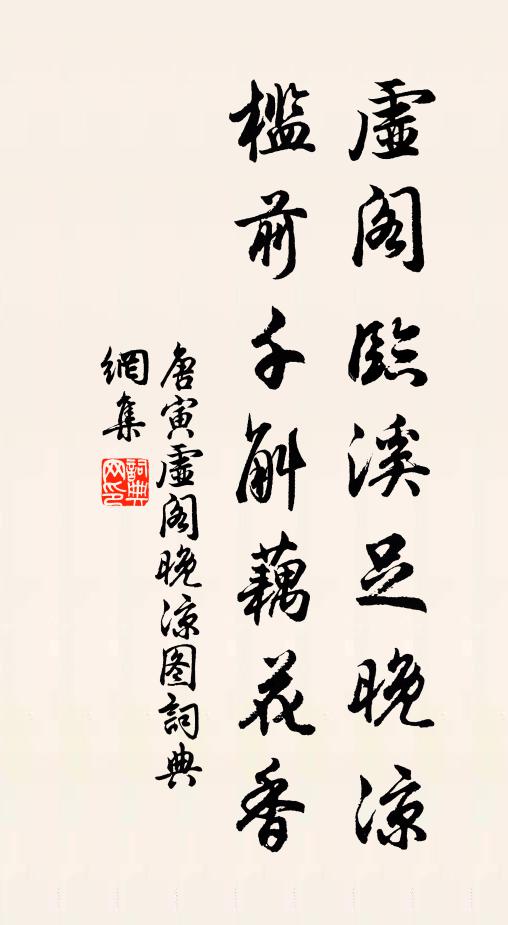 虛阁臨溪足晚凉
槛前千斛藕花香
唐寅虛阁晚凉图詞典
網集
詞典网印